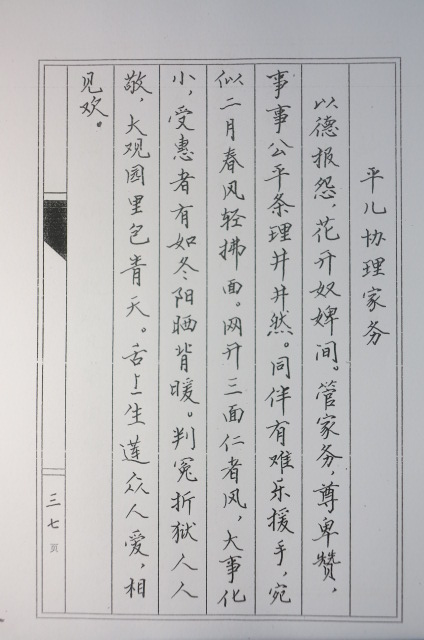 平儿协理家务
以德报怨，花开奴婢间。管家务，尊卑赞，
事事公平条理井井然。同伴有难乐援手，宛
似二月春风轻拂面。网开三面仁者风，大事化
小，受惠者有如冬阳晒背暖。判冤折狱人人
敬，大观园里包青天。舌上生莲众人爱，相
见欢。
三七页